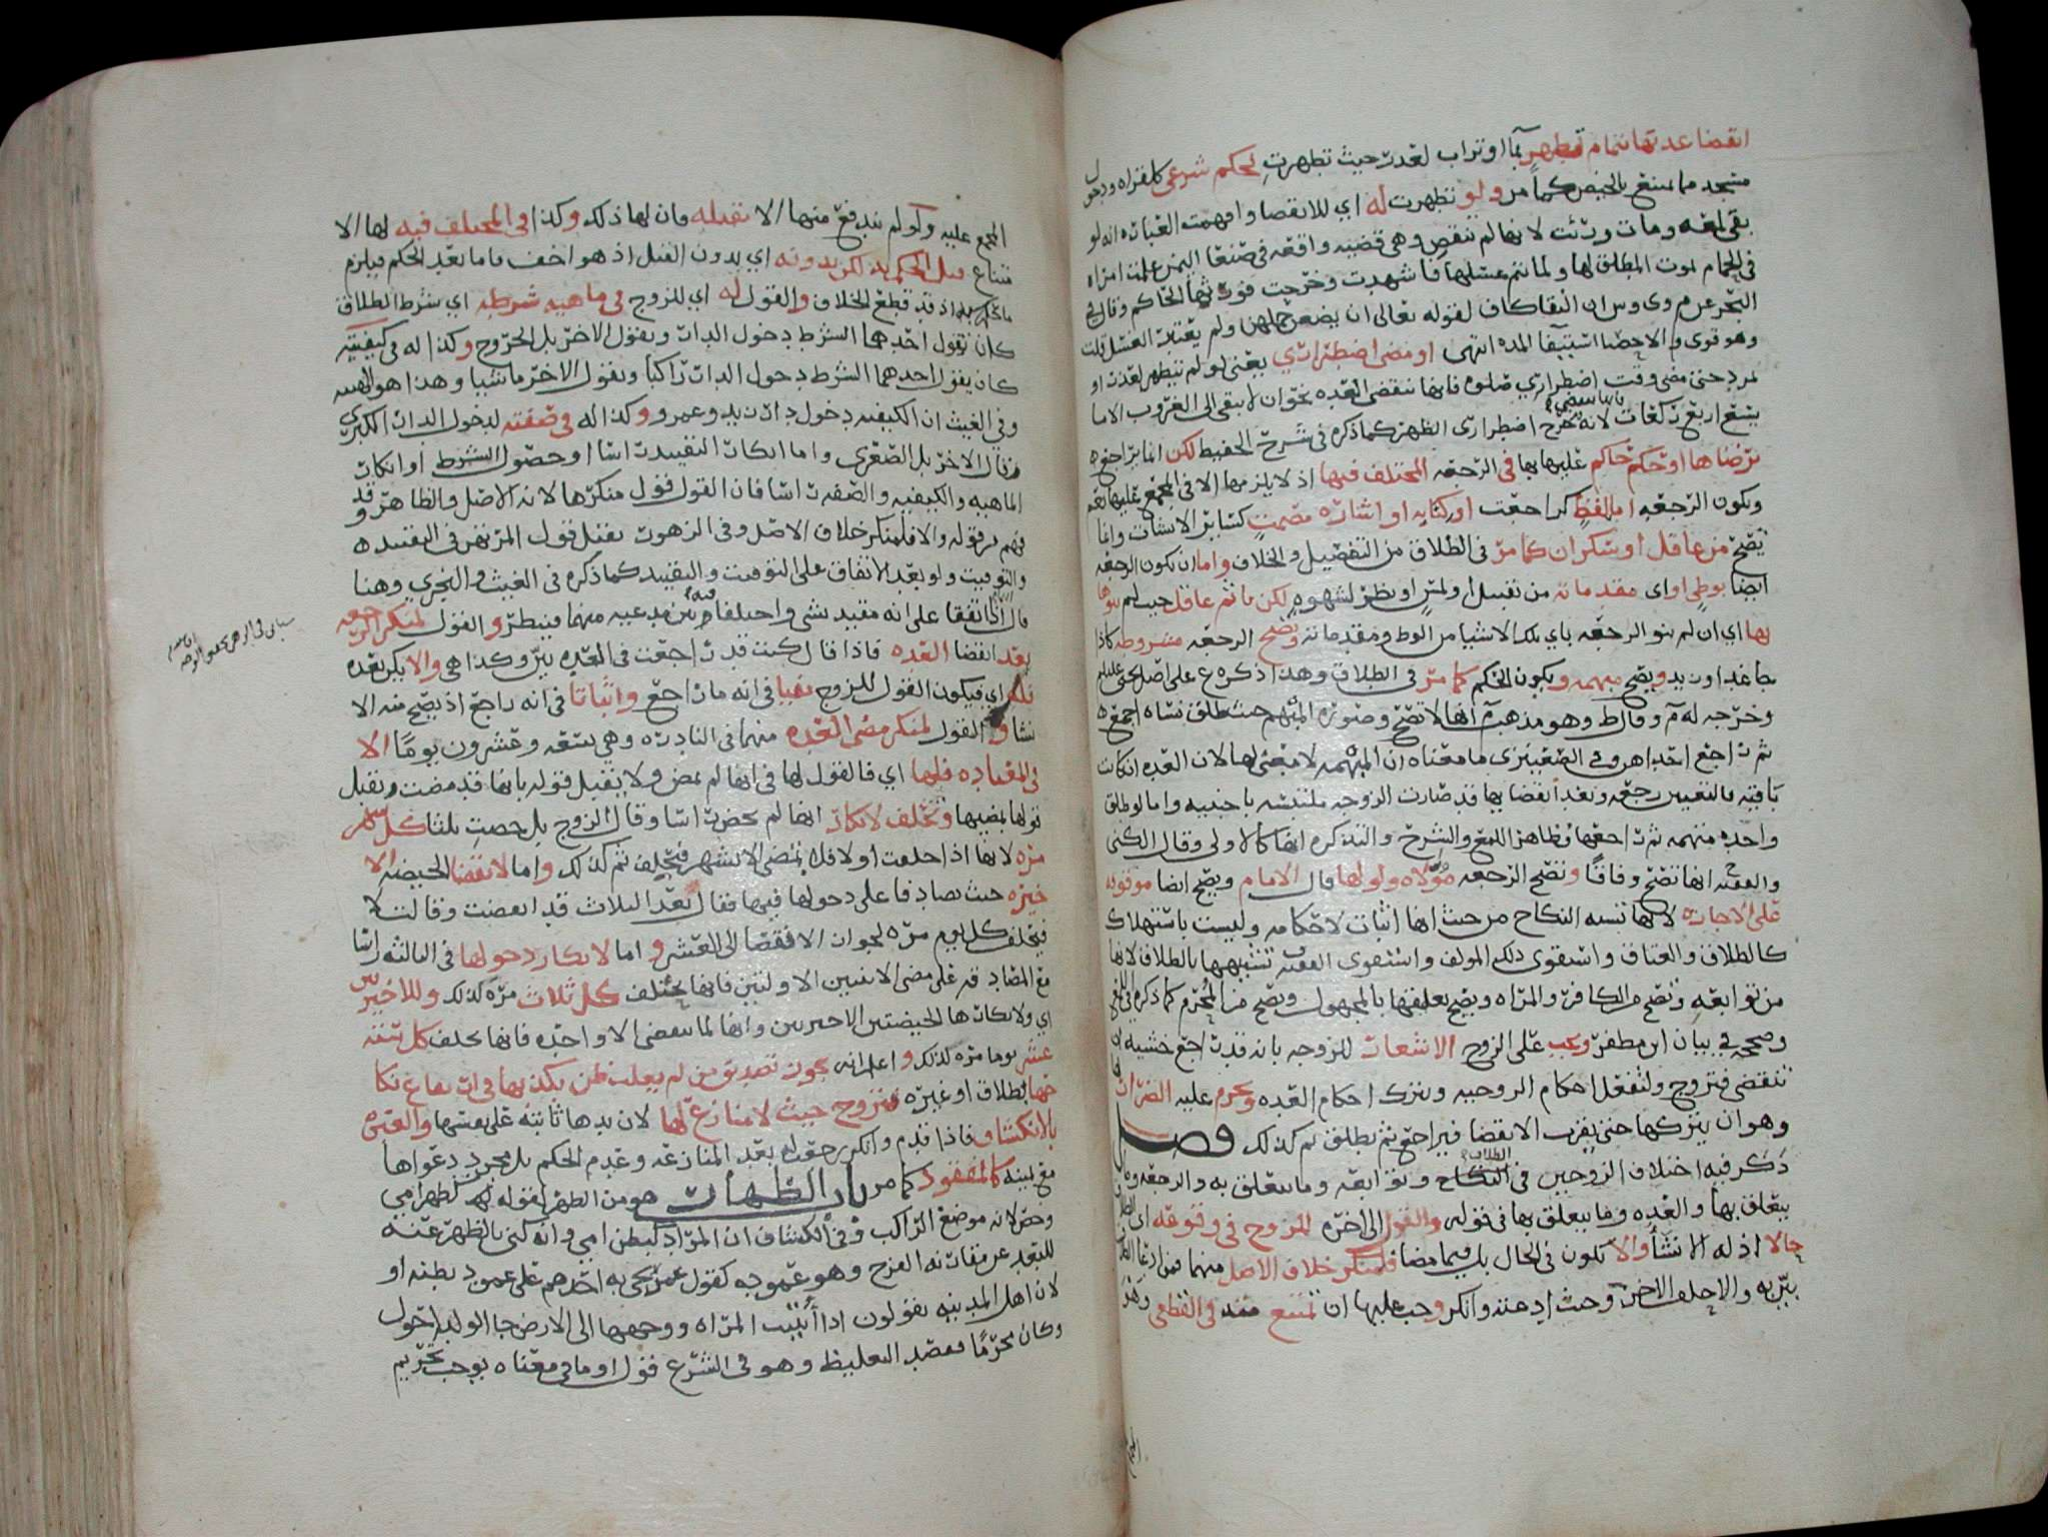 انقضا عدتها تمام تطهر بما او تراب لعذر حيث تطهرت لحكم شرعي كالقراه ودخول
مسجد مما يمتنع بالحيض كما مر ولو تطهرت له اي للانقضا وافهمت العباره انه لو
بقي لمعه ومات ورثت لانها لم تنقض وهي قضيه واقعه في صنعا اليمن علمت امراه
في الحمام بموت المطلق لها ولما تتم غسلها فاشهدت وخرجت فورثها الحاكم وقال في
البحر عن م وى وس ان النقا كاف لقوله تعالى ان يضعن حملهن ولم يعتبر الغسل قلت
وهو قوي والاحصا استيفا المده انتهى او مضى اضطراري يعني لو لم تتطهر لعذر او
تمرد حتى مضى وقت اضطراري صلوه فانها تنقضي العده نحو ان لا يبقى الى الغروب الا ما
يسع اربع ركعات لانه يخرج اضطراري الظهر كما ذكره في شرح الحفيظ لكن انما يراجع
برضاها او حكم حاكم عليها بها في الرجعه المختلف فيها اذ لا يلزمها الا في المجمع عليها
وتكون الرجعه اما بلفظ كراجعت او كتابه او اشاره مصمت كسائر الانشات وانما
يصح من عاقل او سكران كما مر في الطلاق من التفصيل والخلاف واما ان تكون الرجعه
ايضا بوطي او اي مقدماته من تقبيل او لمس او نظر لشهوه لكن ياثم عاقل حيث لم ينوها
بها اي ان لم ينو الرجعه باي تلك الاشيا من الوطي ومقدماته وتصح الرجعه مشروطه كاذا
جا غد او زيد وتصح مبهمه ويكون الحكم كما مر في الطلاق وهذا ذكره ع على اصل يحيى
وخرجه له م وقال ط وهو مذهب انها لا تصح وصورة المبهم حيث طلق نساه اجمع
ثم راجع احداهن وفي الصعيتري ما معناه ان المبهمه لا معنى لها لان العده ان كانت
باقيه فالتعيين رجعه وبعد انقضايها قد صارت الزوجه ملتبسه باجنبيه واما لو طلق
واحده مبهمه ثم راجعها فظاهر اللمع والشرح والتذكره انها كالاولى وقال الكني
والفقيه انها تصح وفاقا وتصح الرجعه مولاه ولو لها قال الامام ويصح ايضا موقوفه
على الاجازه لانها تشبه النكاح من حيث انها اثبات لاحكامه وليست باستهلاك
كالطلاق والعتاق واستقوى ذلك المولف واستقوى الفقيه تشبيهها بالطلاق لانها
من توابعه وتصح من الكافر والمراه ويصح تعليقها بالمجهول وتصح من المحرم كما ذكره في اللمع
وصححه في بيان ابن مظفر ويجب على الزوج الاشعار للزوجه بانه قد راجع خشيه ان
تنقضي فتزوج ولتفعل احكام الزوجيه وتترك احكام العده ويحرم عليه الضرار
وهو ان يتركها حتى يقرب الانقضا فيراجع ثم يطلق ثم كذلك فصل
ذكر فيه اختلاف الزوجين في الطلاق وتوابعه وما يتعلق به والرجعه وما
يتعلق بها والعده وما يتعلق بها في قوله والقول الى اخره للزوج في وقوعه اي الطلاق
حالا اذ له الانشا والا تكون في الحال بل فيما مضا فلمنكر خلاف الاصل منهما فمن ادعا
بين به والا حلف الاخر وحيث ادعته وانكر وجب عليها ان تمتنع منه في القطعي وهو
المجمع عليه ولو لم يندفع منها الا بقتله فان لها ذلك وكذا في المختلف فيه لها الا
متناع قبل الحكم به لكن بدونه اي بدون القتل اذ هو اخف فاما بعد الحكم فيلزم
ما حكم به اذ قد قطع الخلاف والقول له اي للزوج في ماهيه شرطه اي شرط الطلاق
كان تقول احدهما الشرط دخول الدار ويقول الاخر بل الخروج وكذا له في كيفيته
كان يقول احدهما الشرط دخول الدار راكبا ويقول الاخر ماشيا وهذا هو
وفي الغيث ان الكيفيه دخول دار زيد وعمرو وكذا له في صفته لدخول الدار الكبرى
وقال الاخر بل الصغرى واما انكار التقييد راسا او حصول الشرط او انكار
الماهيه والكيفيه والصفه راسا فان القول قول منكرها لانه الاصل والظاهر وقد
فهم من قوله والا فلمنكر خلاف الاصل وفي الزهور يقبل قول المزنهر في التقييد
والتوقيت ولو بعد الاتفاق على التوقيت والتقييد كما ذكره في الغيث والنجري وهنا
قال اذا اتفقا على انه مقيد بشي واختلفا فيه بين مدعيه منهما فينظر والقول لمنكر الرجعه
بعد انقضا العده فاذا قال كنت قد راجعت في العده بين وكذا هي والا يكن بعده
فله اي فيكون القول للزوج نفيا في انه ما راجع واثباتا في انه راجع اذ يصح منه الا
نشا والقول لمنكر مضي العده منهما في النادره وهي تسعه وعشرون يوما الا
في المعتاده فلها اي فالقول لها في انها لم تمض ولا يقبل قوله بانها قد مضت ويقبل
قولها بمضيها وتحلف لانكار انها لم تحض راسا وقال الزوج بل حضت ثلثا كل شهر
مره لانها اذا حلفت اولا فله بمضي الاشهر فتحلف ثم كذلك واما لانقضا الحيضه الا
خيره حيث تصادقا على دخولها فيها فقال بعد الثلاث قد انقضت وقالت لا
فتحلف كل يوم مره لجواز الانقضا الى العشر واما لانكار دخولها في الثالثه راسا
مع المصادقه على مضي الاثنتين الاولتين فانها تحلف كل ثلاث مره كذلك وللاخيرتين
اي ولانكارها الحيضتين الاخيرتين وانها لما تنقضي الا واحده فانها تحلف كل تسعه
عشر يوما مره كذلك واعلم انه يجوز تصديق من لم يغلب ظن بكذبها في ارتفاع نكا
حها بطلاق او غيره فتزوج حيث لا منازع لها لان يدها ثابته على نفسها والعبره
بالانكشاف فاذا قدم وانكر رجعت له بعد المنازعه وعدم الحكم بل مجرد دعواها
مع بينه كالمفقود كما مر باب الظهار هو من الظهر لقوله كظهر امي
وخص لانه موضع الراكب وفي الكشاف ان المراد كبطن امي وانه كنى بالظهر عنه
للبعد عن مقارنه الفرج وهو عموده كقول عمر يجي به احدهم على عمود بطنه او
لان اهل المدينه يقولون اذا اتيت المراه ووجهها الى الارض جا الولد احول
وكان محرما فقصد التغليظ وهو في الشرع قول او ما في معناه يوجب تحريم